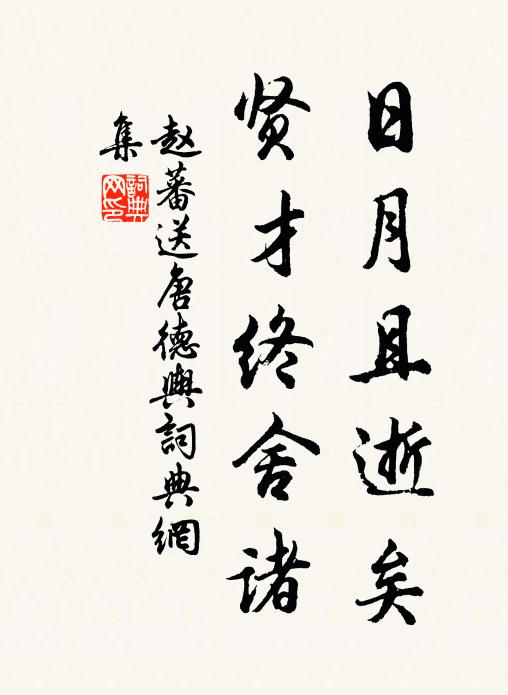 日月且逝矣
贤才终舍诸
赵蕃送唐德舆詞典網
集
詞典网印